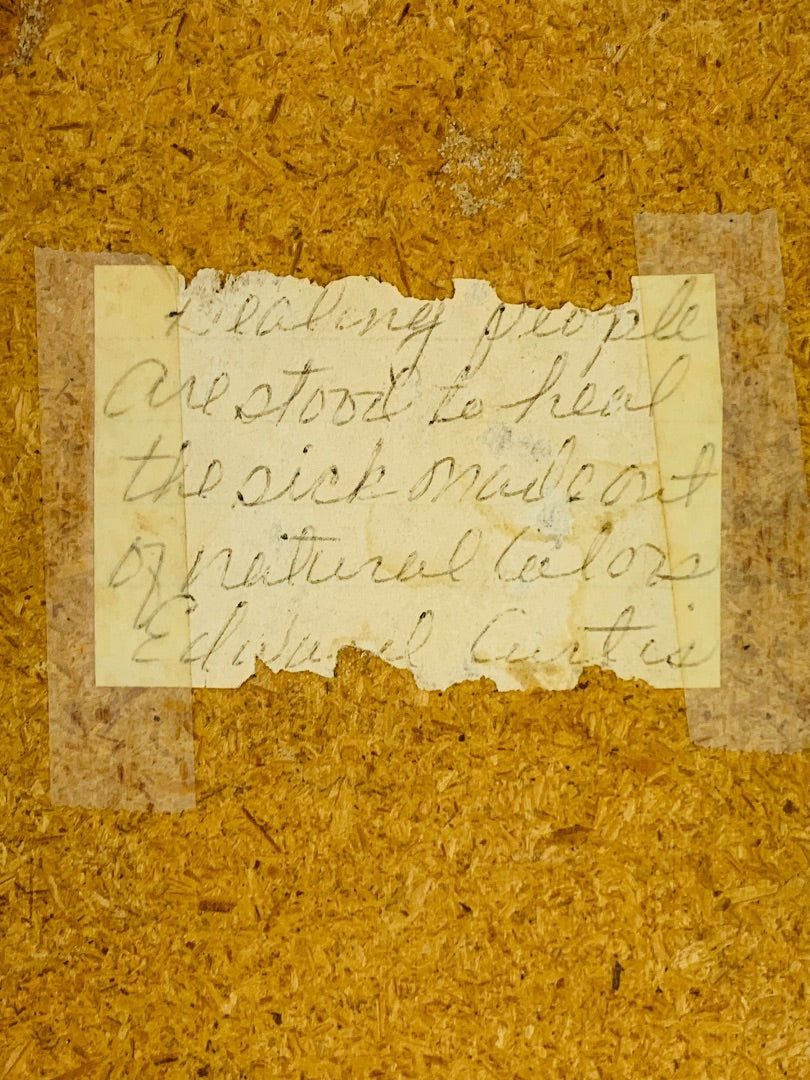 Healing people
are stood to heal
the sick made out
of natural Colors
Edward Curtis